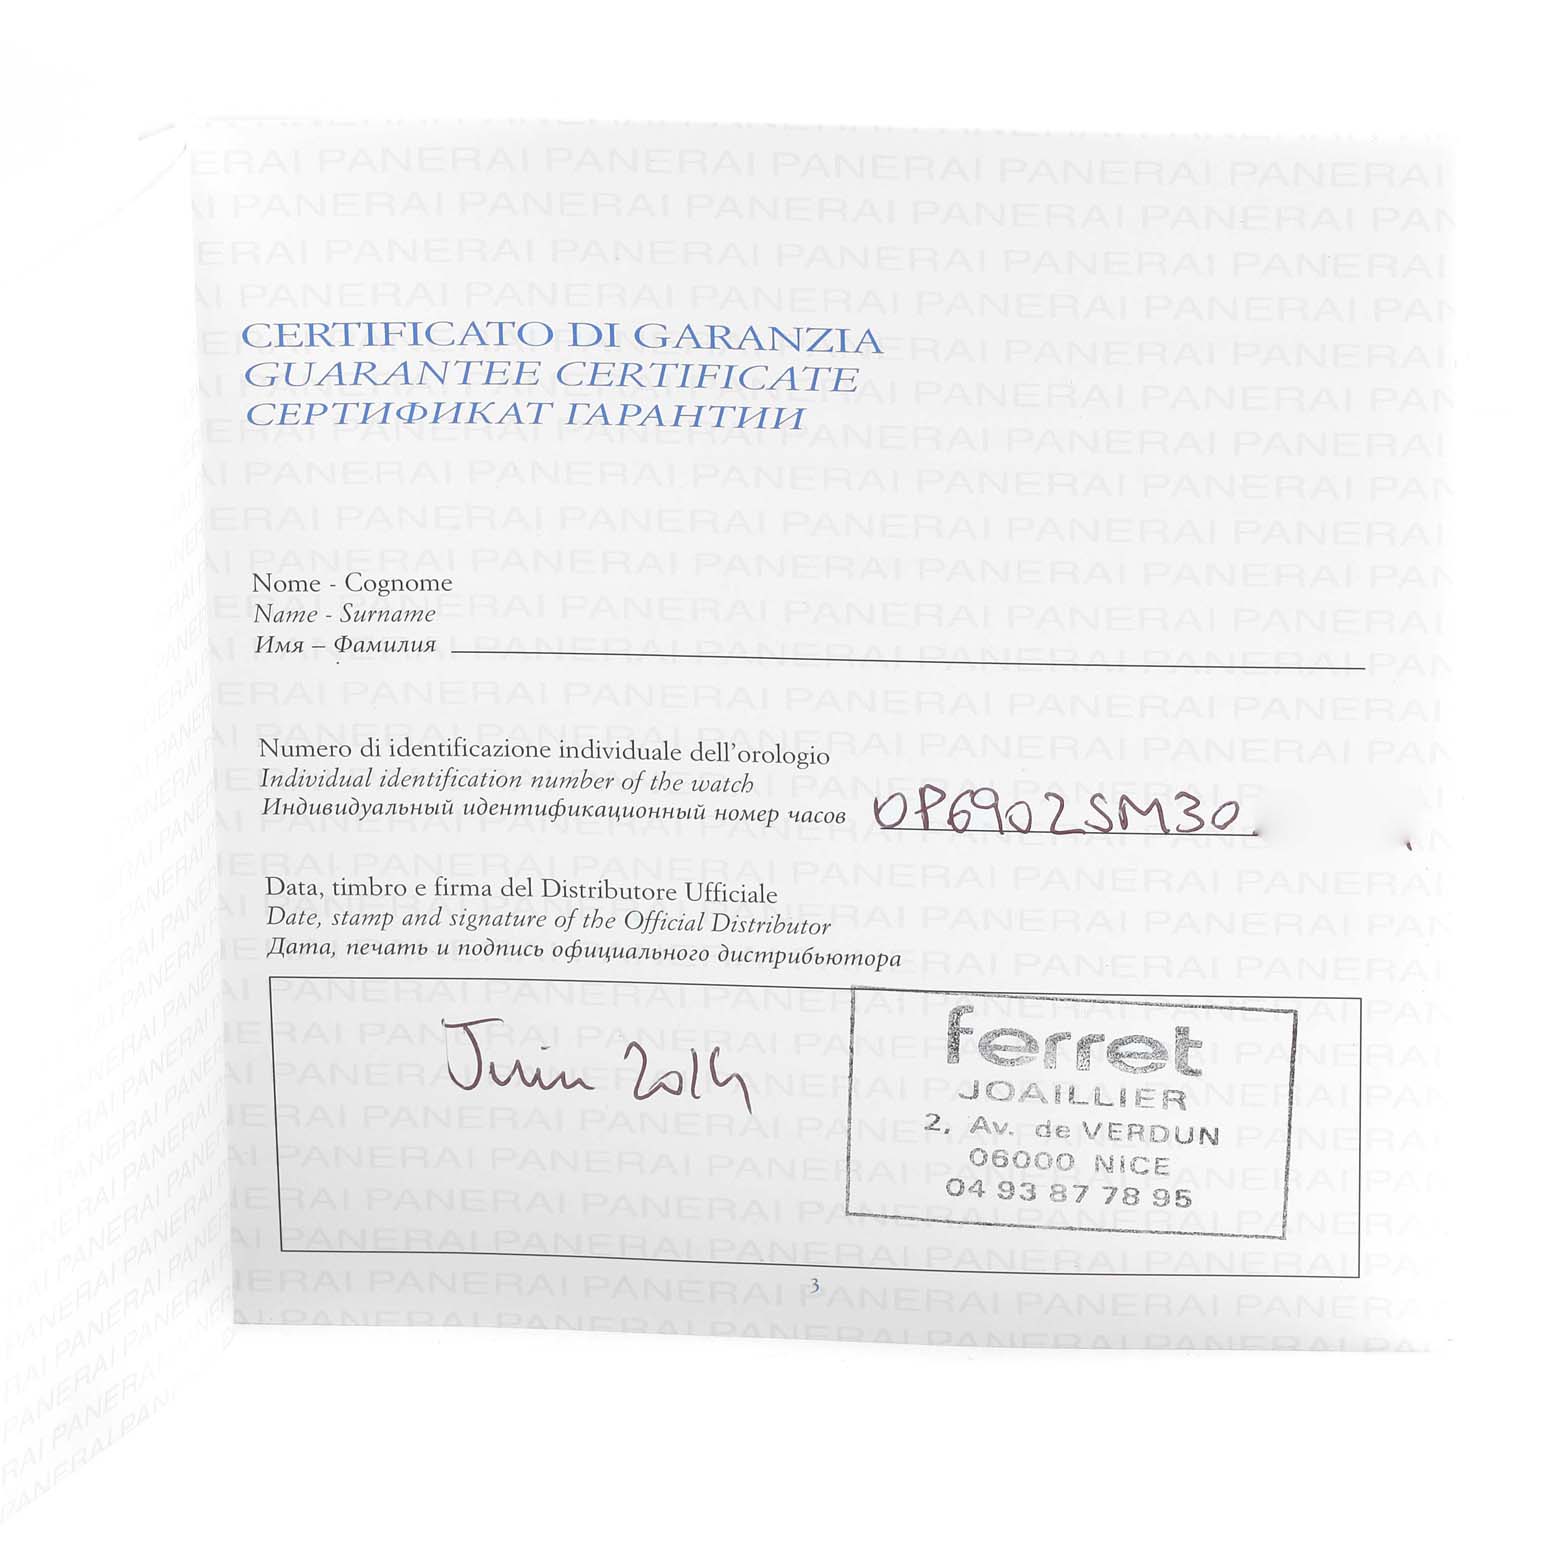 CERTIFICATO DI GARANZIA
GUARANTEE CERTIFICATE
СЕРТИФИКАТ ГАРАНТИИ
Nome - Cognome
Name - Surname
Имя – Фамилия
Numero di identificazione individuale dell'orologio
Individual identification number of the watch
Индивидуальный идентификационный номер часов OP6902SM30
Data, timbro e firma del Distributore Ufficiale
Date, stamp and signature of the Official Distributor
Дата, печать и подпись официального дистрибьютора
Juin 2014
ferret
JOAILLIER
2, Av. de VERDUN
06000 NICE
04 93 87 78 95
3